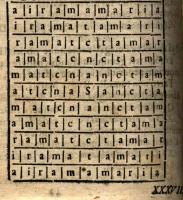 a i r a m a m a r i a
i r a m a t a m a r i
r a m a t c t a m a r
a m a t c n c t a m a
m a t c n a n c t a m
a t c n a S a n c t a
m a t c n a n c t a m
a m a t c n c t a m a
r a m a t c t a m a r
i r a m a t a m a r i
a i r a m a m a r i a
XXXVII